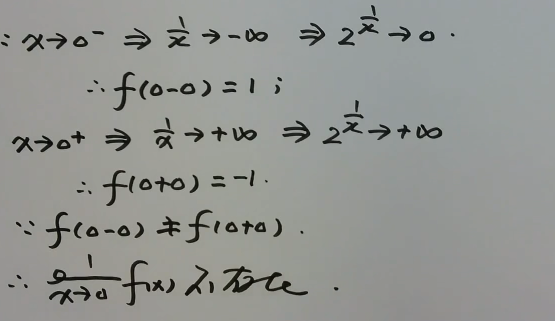 ∵ x→0⁻ ⇒ 1/x → -∞ ⇒ 2^(1/x) → 0.
∴ f(0-0) = 1;
x→0⁺ ⇒ 1/x → +∞ ⇒ 2^(1/x) → +∞
∴ f(0+0) = -1.
∵ f(0-0) ≠ f(0+0).
∴ lim x→0 f(x) 不存在.